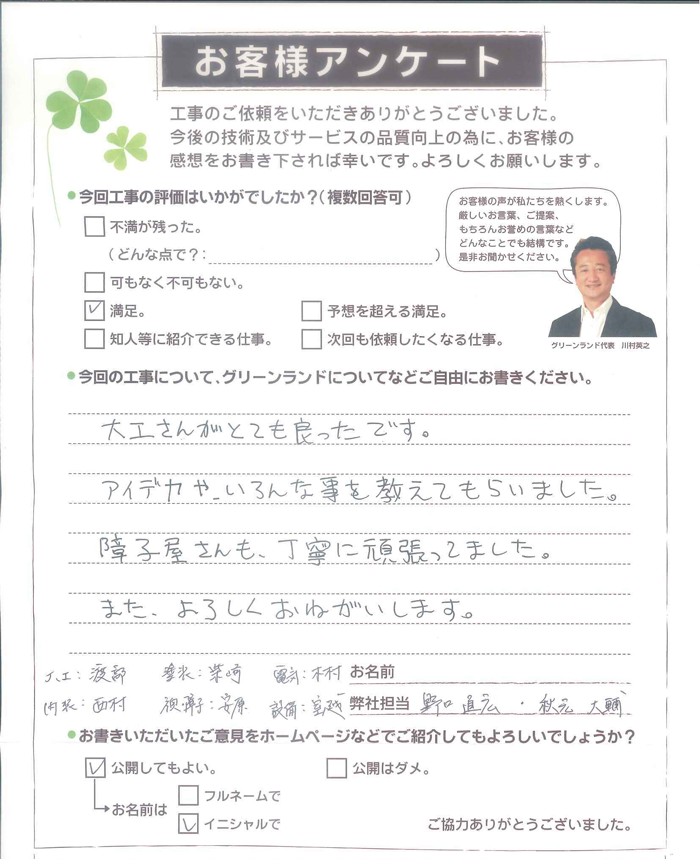 お客様アンケート
工事のご依頼をいただきありがとうございました。
今後の技術及びサービスの品質向上の為に、お客様の
感想をお書き下されば幸いです。よろしくお願いします。
今回工事の評価はいかがでしたか？（複数回答可）
不満が残った。
（どんな点で？：　　　　）
可もなく不可もない。
満足。
予想を超える満足。
知人等に紹介できる仕事。
次回も依頼したくなる仕事。
お客様の声が私たちを熱くします。
厳しいお言葉、ご提案、
もちろんお誉めの言葉など
どんなことでも結構です。
是非お聞かせください。
グリーンランド代表　川村英之
今回の工事について、グリーンランドについてなどご自由にお書きください。
大工さんがとても良ったです。
アイデカや、いろんな事を教えてもらいました。
障子屋さんも、丁寧に頑張ってました。
また、よろしくおねがいします。
渡部　柴崎　木村　お名前
内装：西村　安原　設備：　弊社担当　野口 直広 ・ 秋元 大輔
お書きいただいたご意見をホームページなどでご紹介してもよろしいでしょうか？
公開してもよい。
公開はダメ。
お名前は
フルネームで
イニシャルで
ご協力ありがとうございました。